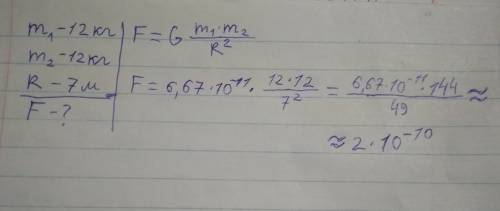 m₁ - 12 кг
m₂ - 12 кг
R - 7 м
F - ?
F = G m₁·m₂ / R²
F = 6,67·10⁻¹¹ · 12·12 / 7² = 6,67·10⁻¹¹·144 / 49 ≈
≈ 2·10⁻¹⁰